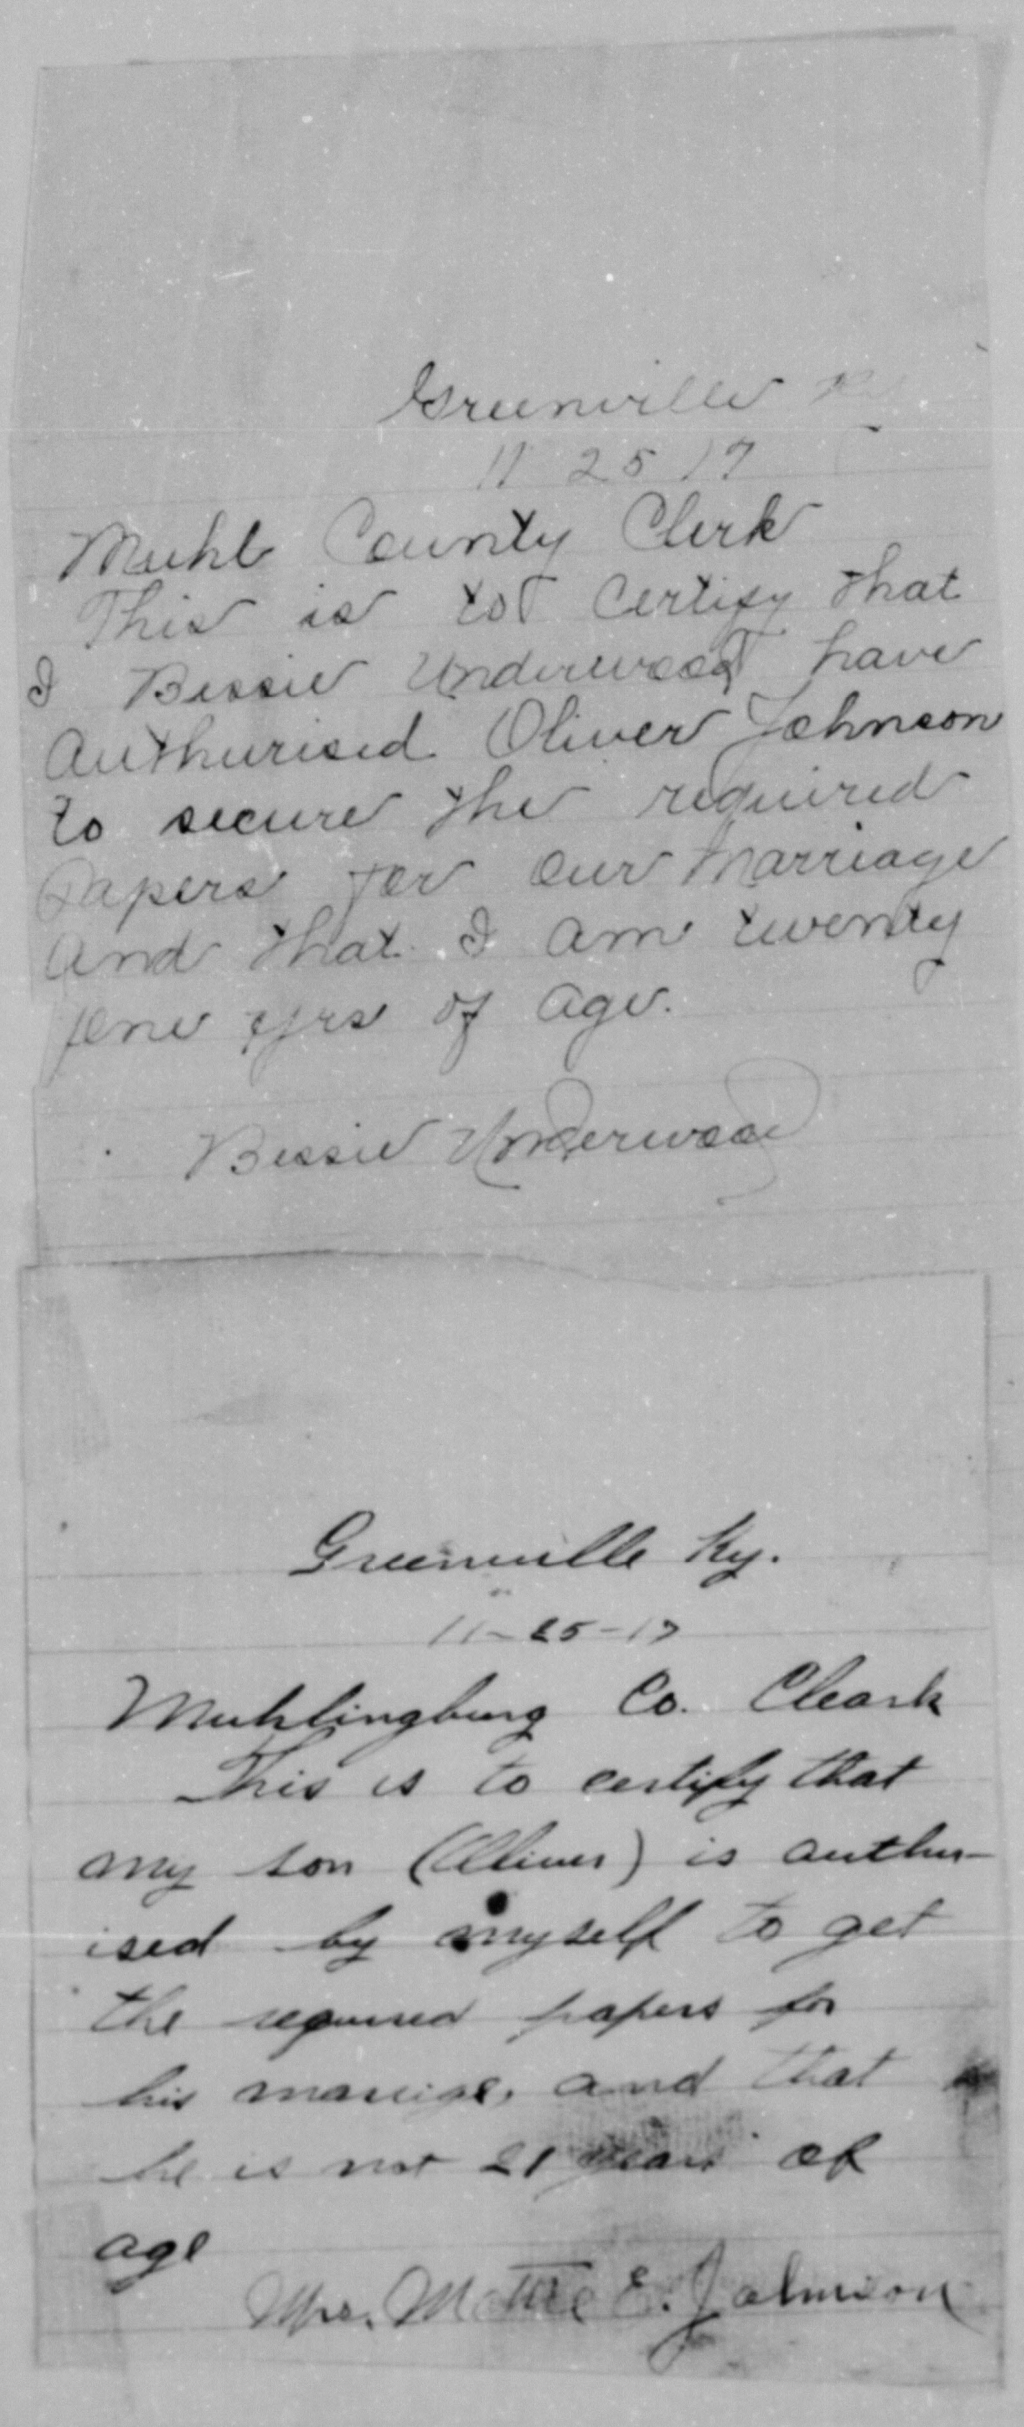 Greenville Ky
11 25 17
Muhl County Clerk
This is to Certify that
I Bessie Underwood have
Authurised Oliver Johnson
to secure the required
Papers for our Marriage
And that I am twenty
one yrs of age.
Bessie Underwood
Greenville Ky.
11-25-17
Muhlingburg Co. Cleark
This is to certify that
my son (Oliver) is author-
ised by myself to get
the required papers for
his marrige, and that
he is not 21 years of
age
Mrs. Mattie E. Johnson